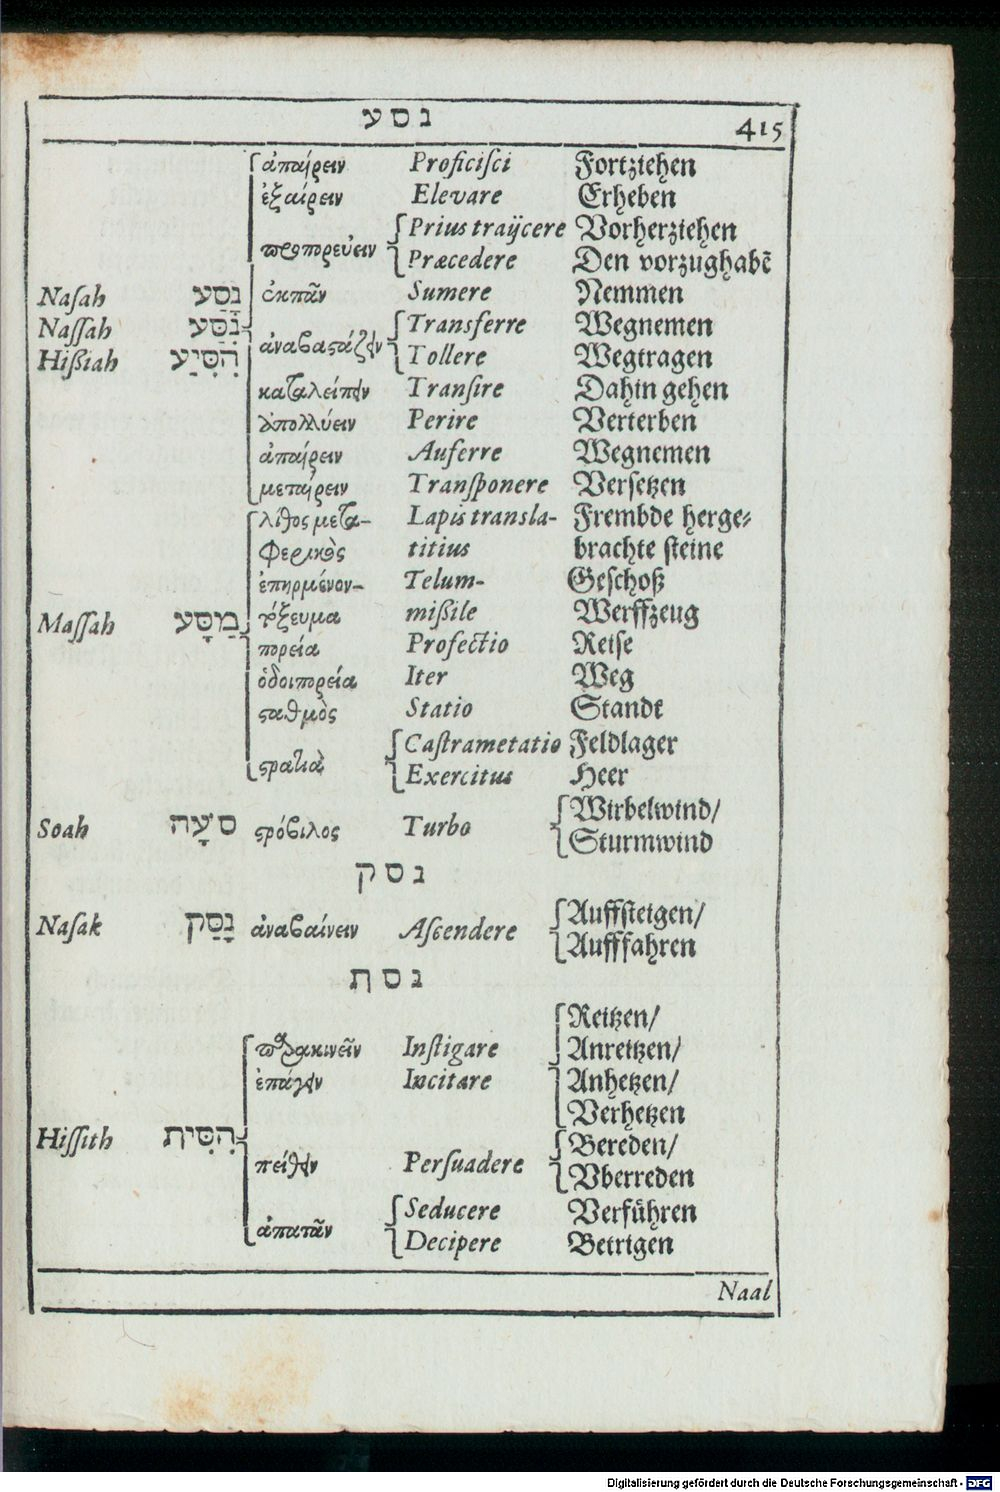 נסע 415
ἀπαίρειν Proficiſci Fortziehen
ἐξαίρειν Elevare Erheben
Prius traijcere Vorherziehen
προπορεύειν
Præcedere Den vorzughabẽ
Naſah נָסַע ἐκπᾶν Sumere Nemmen
Naſſah נִסַּע Transferre Wegnemen
ἀναβαστάζειν
Hißiah הִסִּיַע Tollere Wegtragen
καταλείπειν Tranſire Dahin gehen
ἀπολλύειν Perire Verterben
ἀπαίρειν Auferre Wegnemen
μεταίρειν Tranſponere Verſetzen
λίθος μετα- Lapis transla- Frembde herge-
φερικὸς titius brachte ſteine
ἐπηρμένον- Telum- Geſchoß
τόξευμα mißile Werffzeug
Maſſah מַסָּע
πορεία Profectio Reiſe
ὁδοιπορεία Iter Weg
σταθμὸς Statio Standt
Caſtrametatio Feldlager
στρατιὰ
Exercitus Heer
Wirbelwind/
Soah סֹעָה στρόβιλος Turbo
Sturmwind
נסק
Auffſteigen/
Naſak נָסַק ἀναβαίνειν Aſcendere
Aufffahren
נסת
Reitzen/
παρακινεῖν Inſtigare Anreitzen/
ἐπάγειν Incitare Anhetzen/
Verhetzen
Hiſſith הִסִּית Bereden/
πείθειν Perſuadere
Vberreden
Seducere Verführen
ἀπατᾶν
Decipere Betrigen
Naal
Digitalisierung gefördert durch die Deutsche Forschungsgemeinschaft - DFG